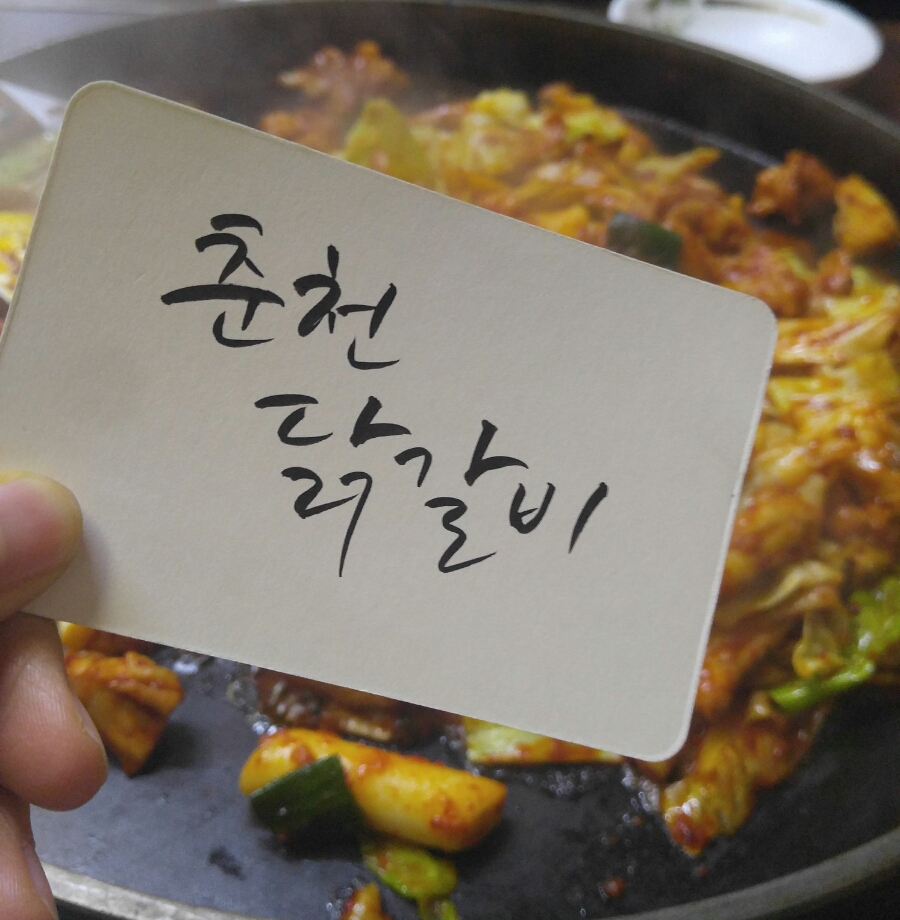 춘천
닭갈비